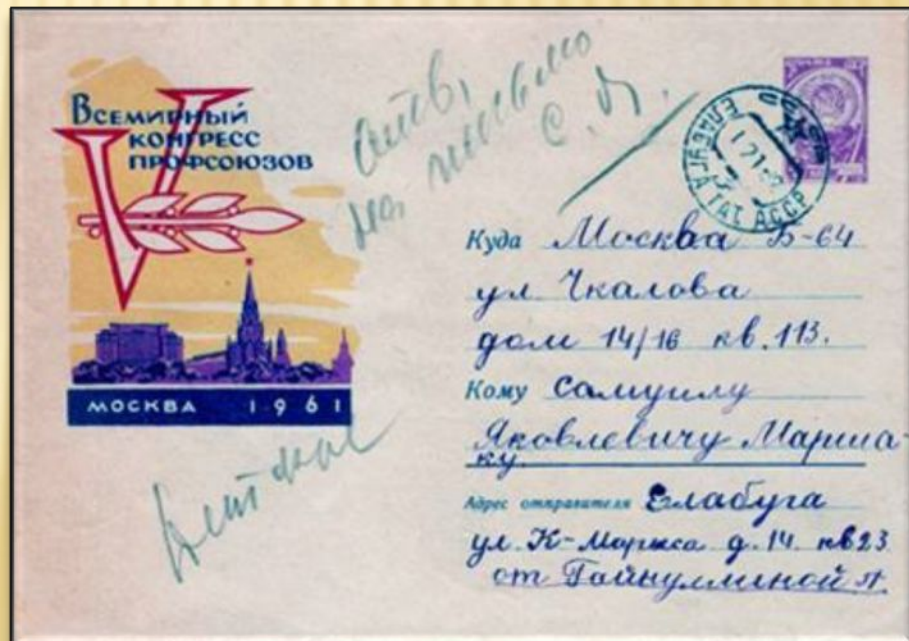 Всемирный
конгресс
профсоюзов
МОСКВА 1961
на письмо
ЕЛАБУГА ТАТ. АССР
Куда Москва Б-64
ул. Чкалова
дом 14/16 кв. 113.
Кому Самуилу
Яковлевичу Марша-
ку.
Адрес отправителя Елабуга
ул. К-Маркса д. 14. кв 23
от Гайнуллиной